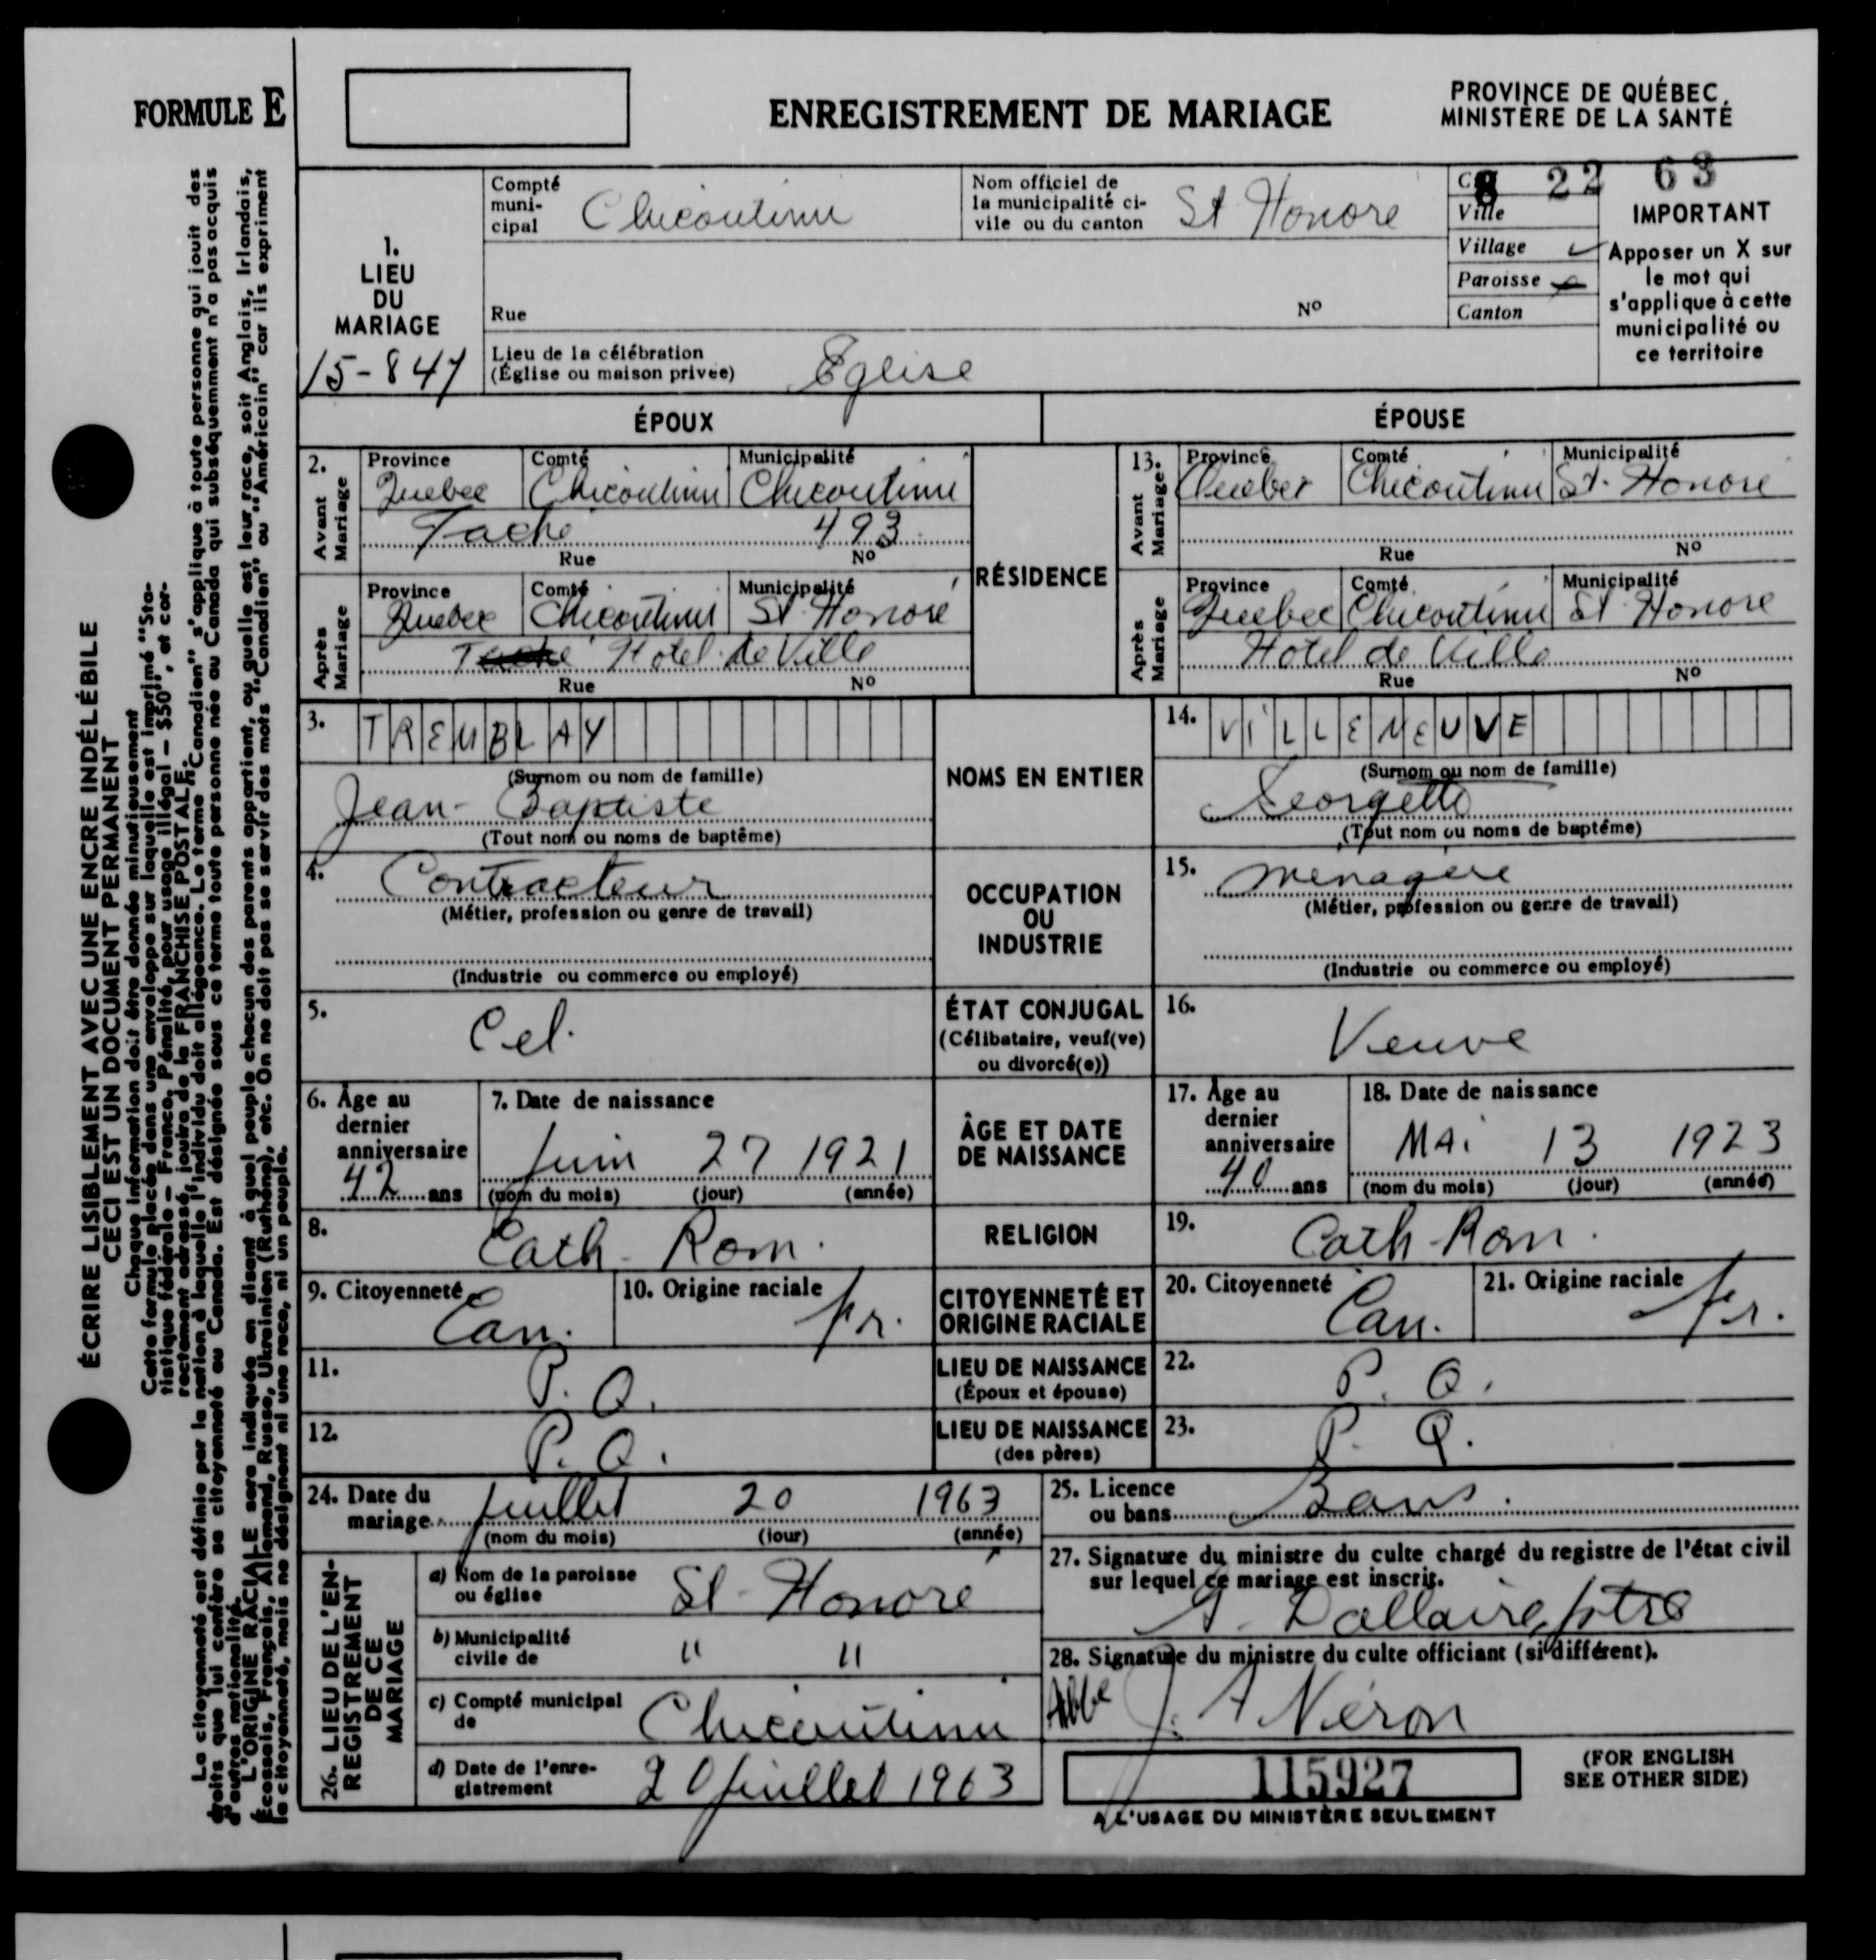 FORMULE E
ENREGISTREMENT DE MARIAGE
PROVINCE DE QUÉBEC,
MINISTÈRE DE LA SANTÉ
8 22 63
1.
LIEU
DU
MARIAGE
15-847
Compté
muni-
cipal
Chicoutimi
Nom officiel de
la municipalité ci-
vile ou du canton
St Honore
Ville
Village
Paroisse
Canton
IMPORTANT
Apposer un X sur
le mot qui
s'applique à cette
municipalité ou
ce territoire
Rue
Nº
Lieu de la célébration
(Église ou maison privée)
Eglise
ÉPOUX
ÉPOUSE
2.
Avant
Mariage
Province
Quebec
Comté
Chicoutimi
Municipalité
Chicoutimi
Tache 493
Rue
Nº
Après
Mariage
Province
Quebec
Comté
Chicoutimi
Municipalité
St Honoré
Hotel de Ville
Rue
Nº
RÉSIDENCE
13.
Avant
Mariage
Province
Quebec
Comté
Chicoutimi
Municipalité
St. Honoré
Rue
Nº
Après
Mariage
Province
Quebec
Comté
Chicoutimi
Municipalité
St Honoré
Hotel de Ville
Rue
Nº
3.
TREMBLAY
(Surnom ou nom de famille)
Jean-Baptiste
(Tout nom ou noms de baptême)
NOMS EN ENTIER
14.
VILLENEUVE
(Surnom ou nom de famille)
Georgette
(Tout nom ou noms de baptême)
4.
Contracteur
(Métier, profession ou genre de travail)
(Industrie ou commerce ou employé)
OCCUPATION
OU
INDUSTRIE
15.
menagère
(Métier, profession ou genre de travail)
(Industrie ou commerce ou employé)
5.
Cel.
ÉTAT CONJUGAL
(Célibataire, veuf(ve)
ou divorcé(e))
16.
Veuve
6. Âge au
dernier
anniversaire
42 ans
7. Date de naissance
Juin 27 1921
(nom du mois) (jour) (année)
ÂGE ET DATE
DE NAISSANCE
17. Âge au
dernier
anniversaire
40 ans
18. Date de naissance
MAi 13 1923
(nom du mois) (jour) (année)
8.
Cath - Rom.
RELIGION
19.
Cath-Rom.
9. Citoyenneté
Can.
10. Origine raciale
fr.
CITOYENNETÉ ET
ORIGINE RACIALE
20. Citoyenneté
Can.
21. Origine raciale
fr.
11.
P. Q.
LIEU DE NAISSANCE
(Époux et épouse)
22.
P. Q.
12.
P. Q.
LIEU DE NAISSANCE
(des pères)
23.
P. Q.
24. Date du
mariage
Juillet 20 1963
(nom du mois) (jour) (année)
25. Licence
ou bans
Bans.
26. LIEU DE L'EN-
REGISTREMENT
DE CE
MARIAGE
a) Nom de la paroisse
ou église
St-Honoré
b) Municipalité
civile de
" "
c) Compté municipal
de
Chicoutimi
d) Date de l'enre-
gistrement
20 juillet 1963
27. Signature du ministre du culte chargé du registre de l'état civil
sur lequel ce mariage est inscrit.
G. Dallaire, ptre
28. Signature du ministre du culte officiant (si différent).
Abbé J. A Néron
115927
A L'USAGE DU MINISTÈRE SEULEMENT
(FOR ENGLISH
SEE OTHER SIDE)
ÉCRIRE LISIBLEMENT AVEC UNE ENCRE INDÉLÉBILE
CECI EST UN DOCUMENT PERMANENT
Chaque information doit être donnée minutieusement
Cette formule placée dans une enveloppe sur laquelle est imprimé "Sta-
tistique fédérale — Franco. Pénalité pour usage illégal — $50", et cor-
rectement adressé, jouira de la FRANCHISE POSTALE.
La citoyenneté est définie par la nation à laquelle l'individu doit allégeance. Le terme "Canadien" s'applique à toute personne qui jouit des
droits que lui confère sa citoyenneté au Canada. Est désignée sous ce terme toute personne née au Canada qui subséquemment n'a pas acquis
d'autres nationalité.
L'ORIGINE RACIALE sera indiquée en disant à quel peuple chacun des parents appartient, ou quelle est leur race, soit Anglais, Irlandais,
Écossais, Français, Allemand, Russe, Ukrainien (Ruthène), etc. On ne doit pas se servir des mots "Canadien" ou "Américain" car ils expriment
la citoyenneté, mais ne désignent ni une race, ni un peuple.